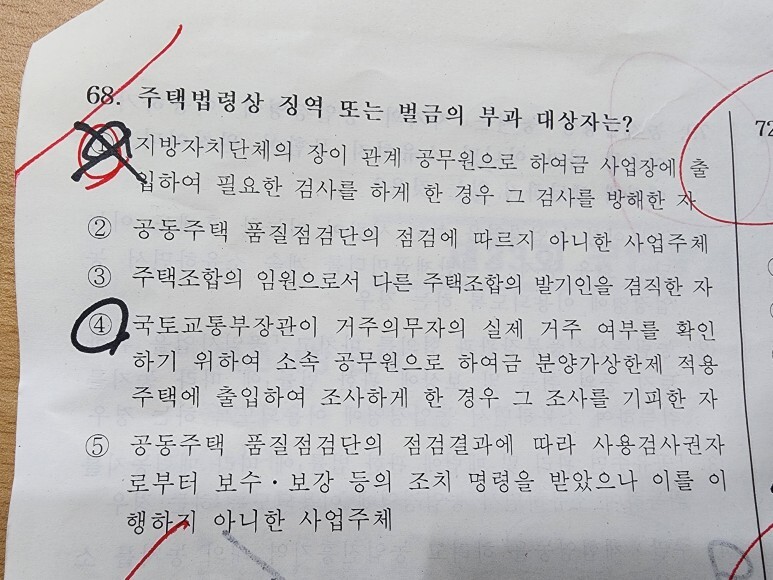 68. 주택법령상 징역 또는 벌금의 부과 대상자는?
① 지방자치단체의 장이 관계 공무원으로 하여금 사업장에 출
입하여 필요한 검사를 하게 한 경우 그 검사를 방해한 자
② 공동주택 품질점검단의 점검에 따르지 아니한 사업주체
③ 주택조합의 임원으로서 다른 주택조합의 발기인을 겸직한 자
④ 국토교통부장관이 거주의무자의 실제 거주 여부를 확인
하기 위하여 소속 공무원으로 하여금 분양가상한제 적용
주택에 출입하여 조사하게 한 경우 그 조사를 기피한 자
⑤ 공동주택 품질점검단의 점검결과에 따라 사용검사권자
로부터 보수·보강 등의 조치 명령을 받았으나 이를 이
행하지 아니한 사업주체
72